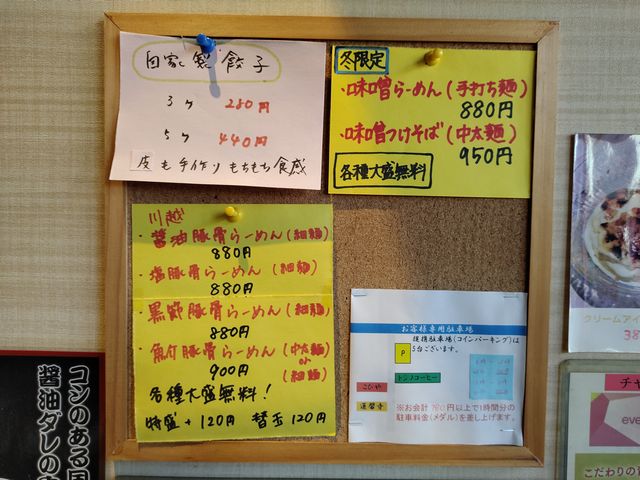 自家製餃子
3ヶ 280円
5ヶ 440円
皮も手作りもちもち食感
冬限定
・味噌らーめん(手打ち麺)
880円
・味噌つけそば(中太麺)
950円
各種大盛無料
川越
・醤油豚骨らーめん(細麺)
880円
・塩豚骨らーめん(細麺)
880円
・黒節豚骨らーめん(細麺)
880円
・魚介豚骨らーめん(中太麺)
or
900円
(細麺)
各種大盛無料!
特盛+120円 替玉120円
お客様専用駐車場
提携駐車場(コインパーキング)は
5台ございます。
P
トシノコーヒー
こひや
蓮馨寺
※お会計780円以上で1時間分の
駐車料金(メダル)を差し上げます。
コシのある
醤油ダレの
クリームアイ
38
チャ
eve
こだわりの